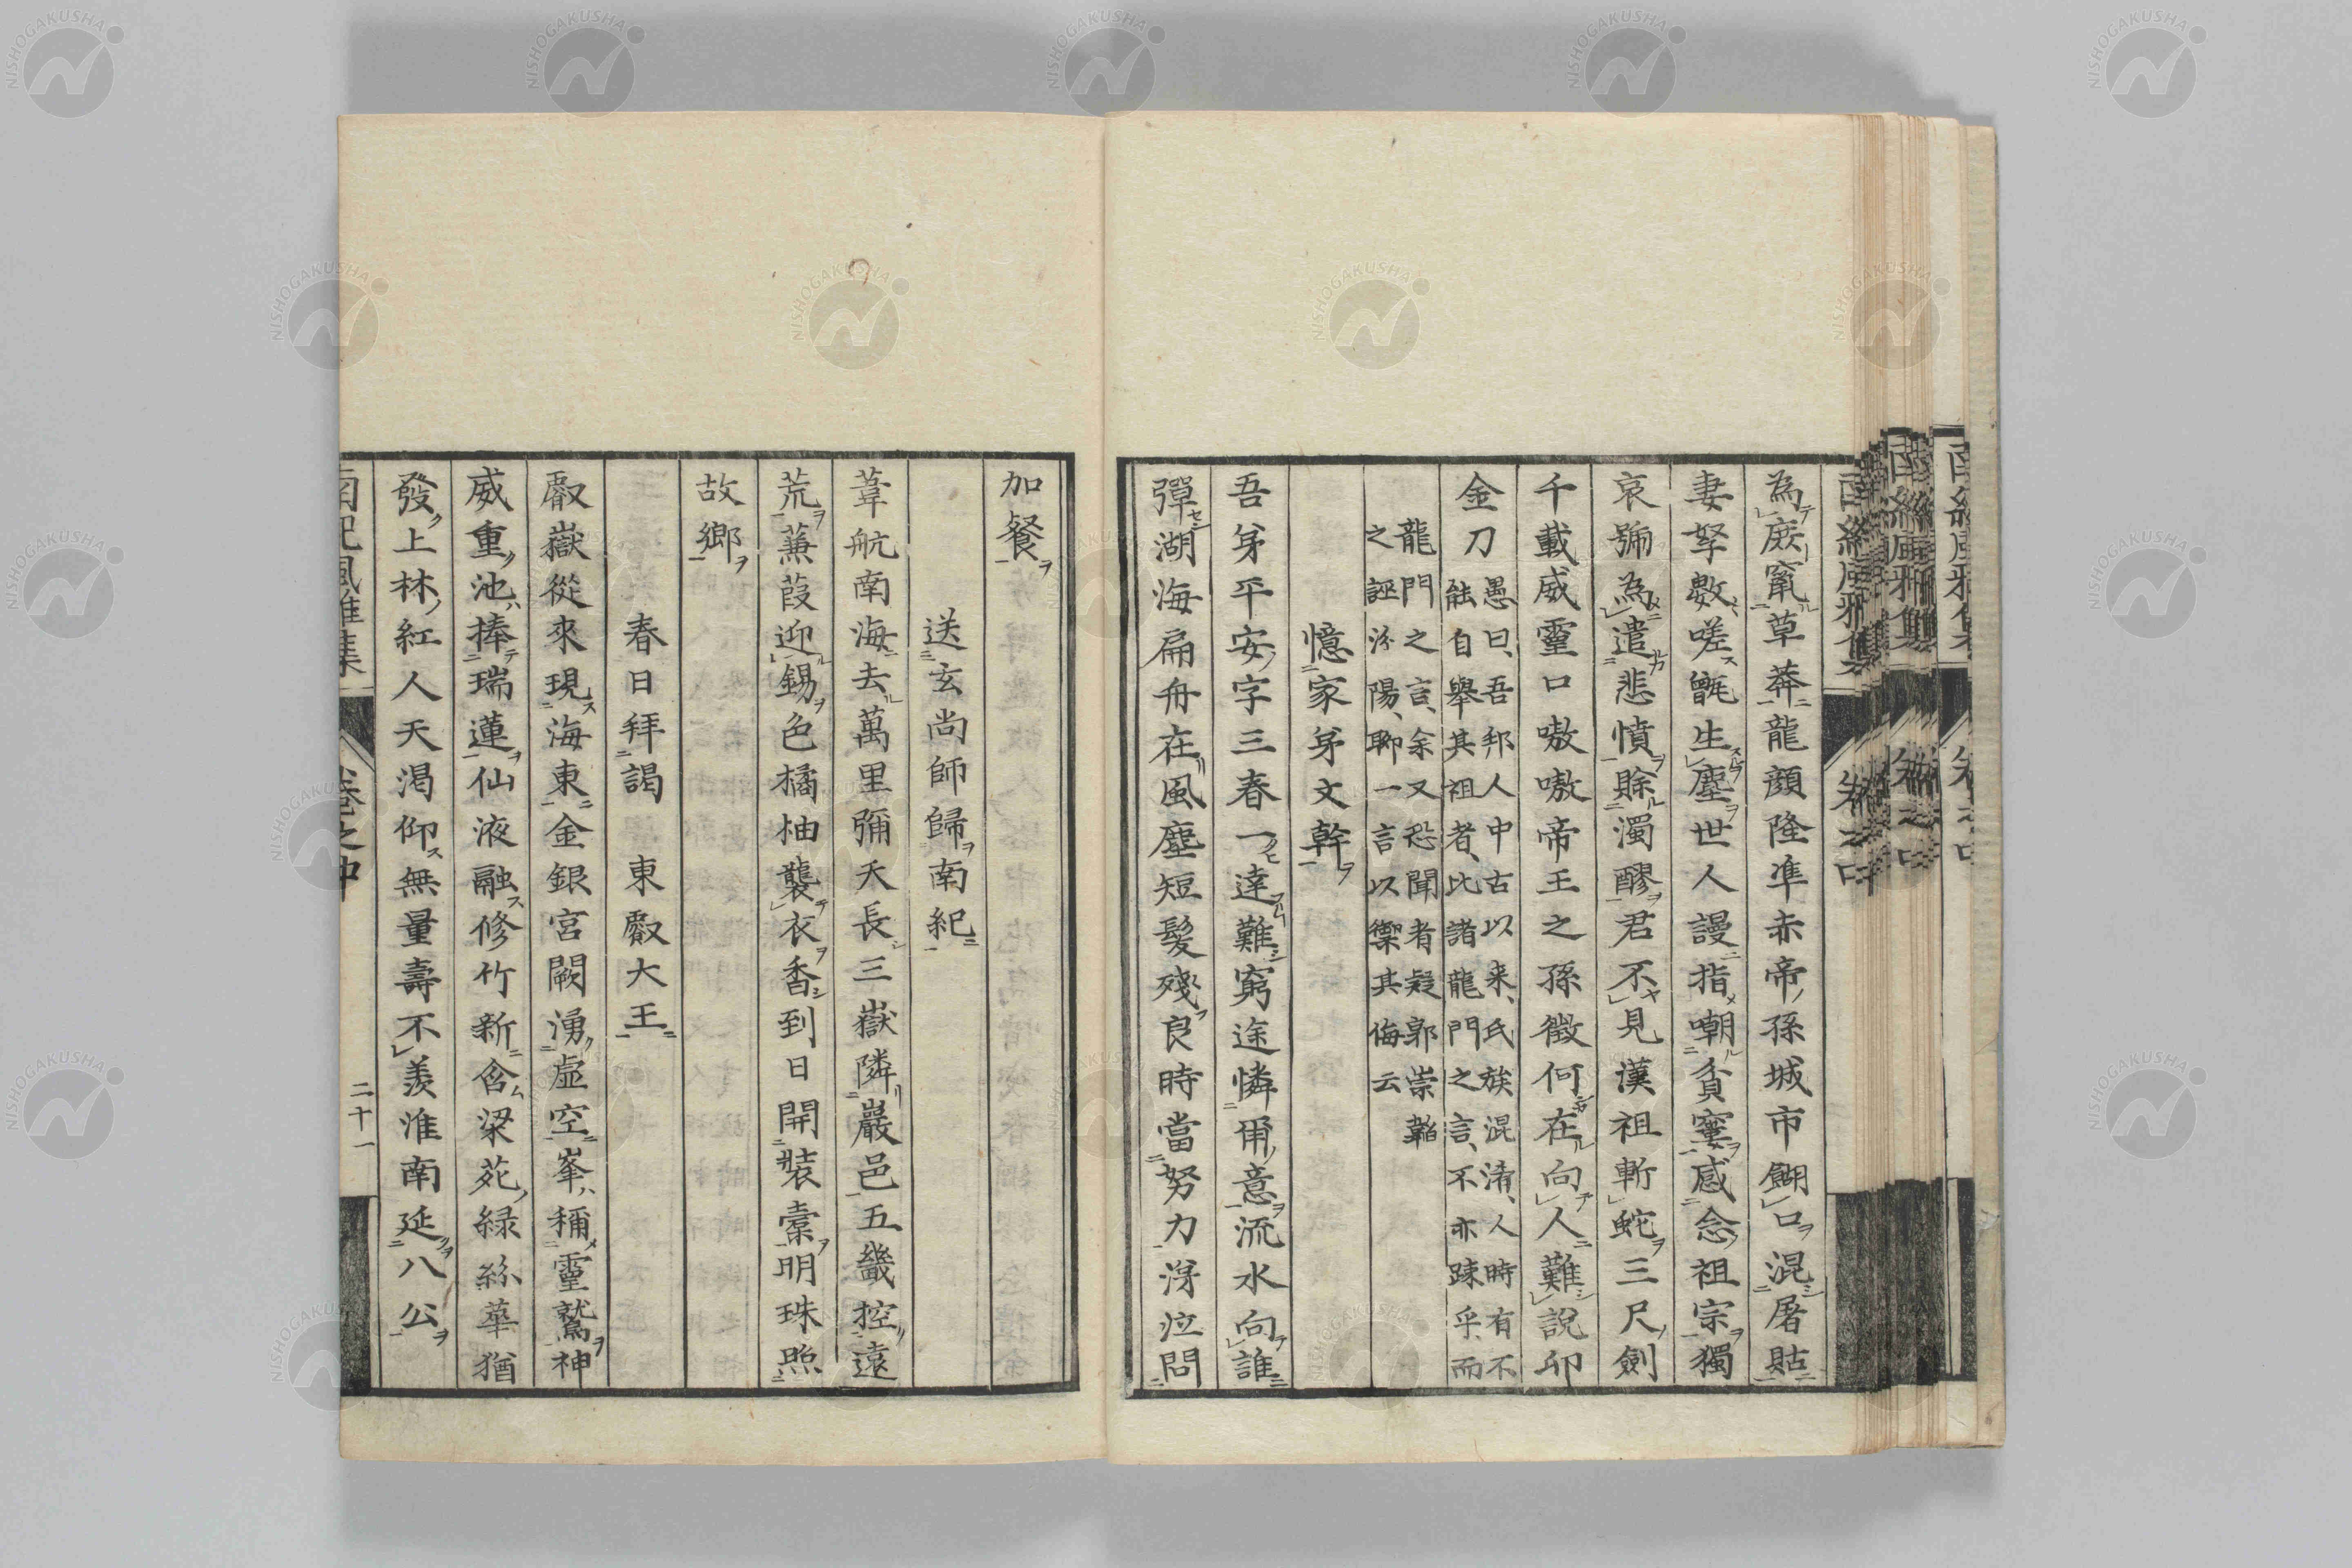 為厥竄草莽龍顔隆準赤帝孫城市餬口混屠詁
妻孥數嗟甑生塵世人謾指嘲貧窶感念祖宗獨
哀號為遣悲憤賒濁醪君不見漢祖斬蛇三尺劍
千載威靈口嗷嗷帝王之孫徵何在向人難說卯
金刀
愚曰、吾邦人中古以来、氏族混淆、人時有不
能自舉其祖者、比諸龍門之言、不亦踈乎、而
龍門之言、余又恐聞者疑郭崇韜
之誣汾陽、聊一言以禦其侮云
憶家弟文幹
吾弟平安字三春一達難窮途憐爾意流水向誰
彈湖海扁舟在風塵短髮殘良時當努力淂泣問
加餐
送玄尚師歸南紀
葦航南海去萬里彌天長三嶽隣巖邑五畿控遠
荒蒹葭迎錫色橘柚襲衣香到日開裝橐明珠照
故鄉
春日拜謁　東叡大王
叡嶽從來現海東金銀宮闕湧虛空峯稱靈鷲神
威重池捧瑞蓮仙液融修竹新含梁苑緑絲華猶
發上林紅人天渇仰無量壽不羨淮南延八公
南紀風雅集　卷之中　二十一